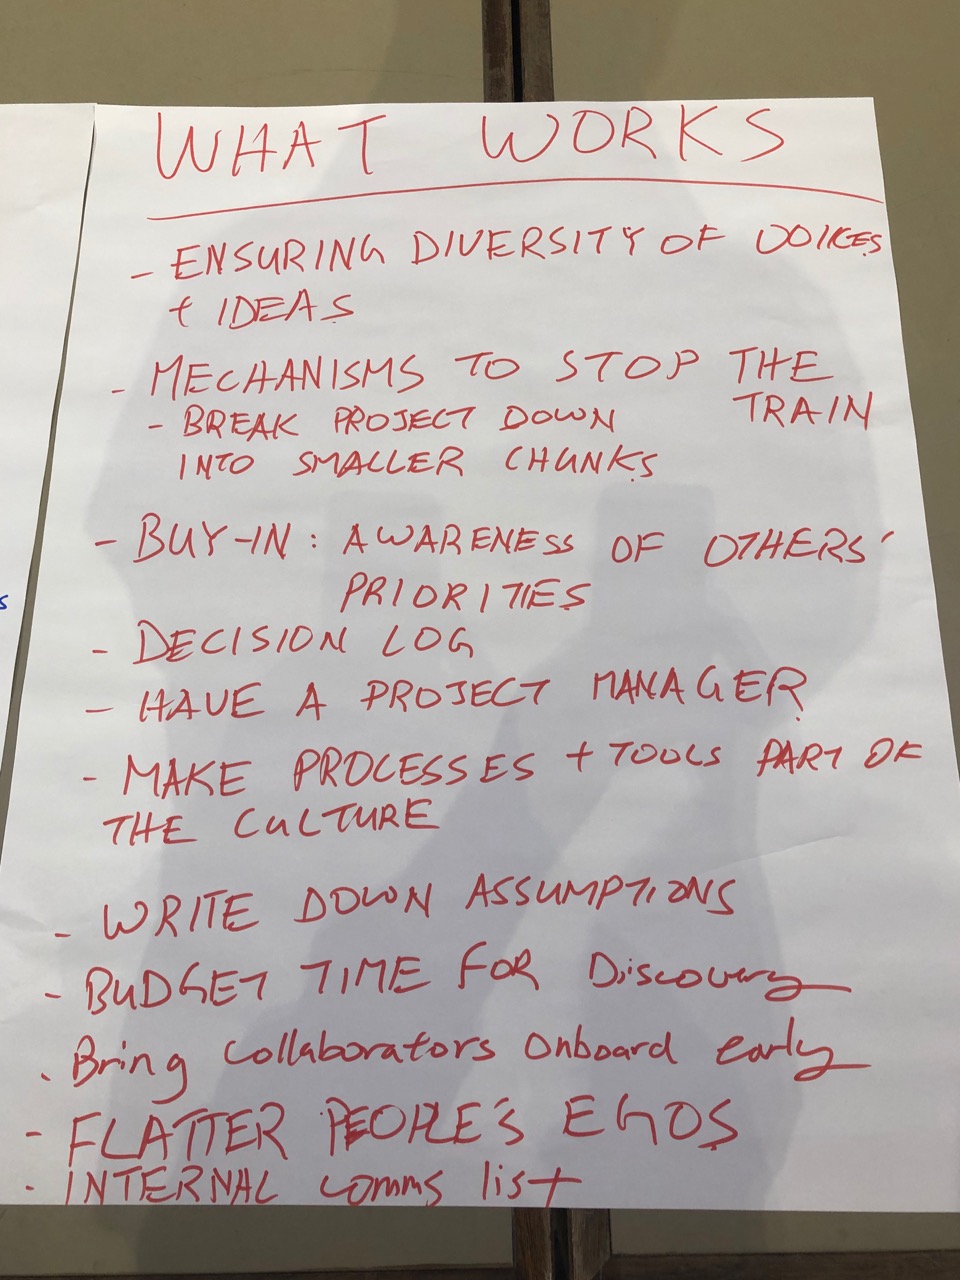 WHAT WORKS
- ENSURING DIVERSITY OF VOICES
+ IDEAS
- MECHANISMS TO STOP THE
TRAIN
- BREAK PROJECT DOWN
INTO SMALLER CHUNKS
- BUY-IN: AWARENESS OF OTHERS'
PRIORITIES
- DECISION LOG
- HAVE A PROJECT MANAGER
- MAKE PROCESSES + TOOLS PART OF
THE CULTURE
- WRITE DOWN ASSUMPTIONS
- BUDGET TIME FOR Discovery
. Bring collaborators onboard early
- FLATTER PEOPLE'S EGOS
- INTERNAL comms list
s